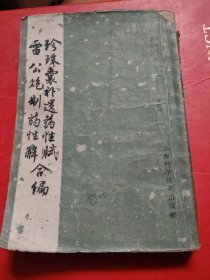 珍珠囊补遗药性赋
雷公炮制药性解 合编
上海科学技术出版社